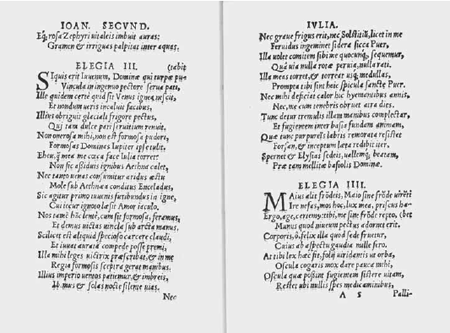 IOAN. SECVND.
rosa Zephyri vitaleis imbuit auras:
Gramen & irriguas palpitat inter aquas,
ELEGIA III. (tabit
SIquis erit iuuenum, Dominæ qui turpia pu-
Vincula in ingenuo pectore pati,
Ille quidem certe quid sit Venus ignea, nescit,
Et nondum veris incaluit facibus,
Illius obriguit glaciali frigore pectus,
Qui tam dulce pati seruitium renuit.
Non onerosa mihi, non est formosa pudori,
Formosas Dominas Iupiter ipse tulit.
Eheu, me cæca face Iulia torret!
Non sic assiduis ignibus Aethna calet,
Nec tanto venas consumitur aridus æstu
Mole sub Aethnæa conditus Enceladus,
Sic agitur primo iuuenis furibundus in igne,
Cui iecur ignoto læsit Amor iaculo.
Nos tamen hæc leuat, cum sit formosa, feramus,
Et demus victas vincla sub arcta manus.
Scilicet est aliquid specioso carcere claudi,
Et iuuat aurata compede posse premi,
Illa mihi leges victrix præscribat, & in me
Regia formosis sceptra gerat manibus.
Illius imperio ventos patiemur, & imbreis,
Ibimus & solas nocte silente vias.
Nec
IVLIA.
Nec graue frigus erit, nec Solstitium, licet in me
Feruidus ingeminet sidera sicca Puer,
Illa volet comitem sibi me quocunque, sequemur,
Qua via nulla rotæ peruia, nulla rati.
Illa meas torret, & torreat usque medullas,
Promptat tibi sint hæc spicula sancte Puer.
Nec mihi deficiat calor hic hyemantibus annis,
Nec, me cum tenebris obruet atra dies.
Tunc detur tremulis illam manibus complectar,
Et fugientem inter basia fundam animam,
Quæ tunc purpureis labris remorata resistet
Forsan, & inceptum læta redibit iter.
Spernet & Elysias sedeis, vallemque beatam,
Præ tam mellitis basiolis Dominæ.
ELEGIA IIII.
MAius alit frodeis, Maio sine frode
Ire nefas, mos hoc, lux mea, priscus ha-
Ergo, age, ceremoniis, me sine frode repto, (bet
Munus quod viuent pectus adoret erit.
Corporis, ô, felix illa quod sede fruetur,
Cuius ab aspectu gaudia nulla fero.
At tibi lex hæc sit, folij viridantis in vmbra,
Oscula cogaris mox dare pauca mihi.
Oscula quæ possint fugientem sistere vitam,
Restet ubi nullis spes medicaminibus,
A 5 Palli-